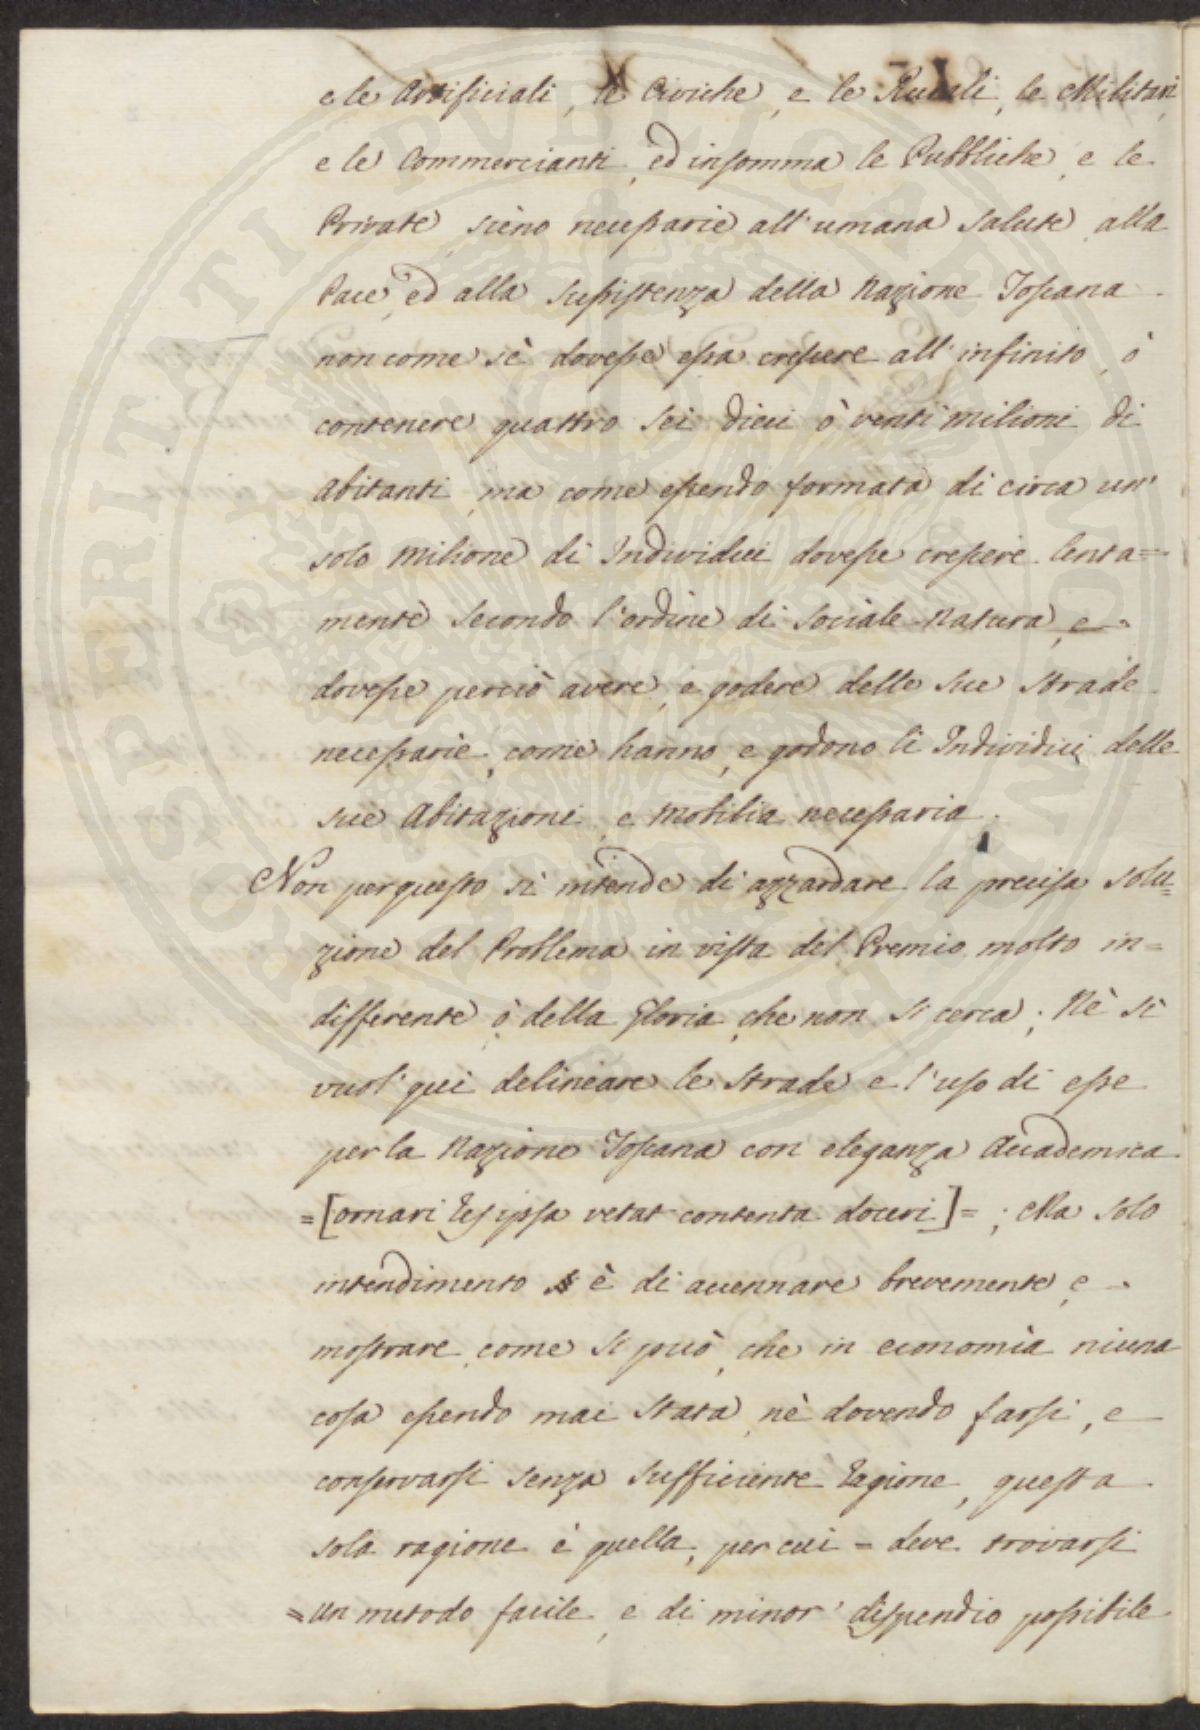 e le Artificiali, le Civiche, e le Rurali, le Militari,
e le Commercianti, ed insomma le Pubbliche, e le
Private sieno necessarie all'umana Salute, alla
Pace, ed alla sussistenza della Nazione Toscana
non come sè dovesse essa crescere all'infinito, ò
contenere quattro sei dieci ò venti milioni di
abitanti, ma come essendo formata di circa un'
solo milione di Individui dovesse crescere lenta=
mente secondo l'ordine di sociale natura, e
dovesse perciò avere, e godere delle sue strade
necessarie, come hanno, e godono li Individui delle
sue Abitazioni, e mobilia necessaria.
Non per questo si intende di azzardare la precisa solu=
zione del Problema in vista del Premio molto in=
differente ò della Gloria, che non si cerca; Nè si
vuol' qui delineare le Strade e l'uso di esse
per la Nazione Toscana con eleganza Accademica
=[ornari res ipsa vetat contenta doceri]=; Ma solo
intendimento è di accennare brevemente, e
mostrare come si può, che in economia niuna
cosa essendo mai stata, nè dovendo farsi, e
conservarsi senza sufficiente ragione, questa
sola ragione è quella, per cui = deve trovarsi
=un metodo facile, e di minor' dispendio possibile
PROSPERITATI PUBLICAE AUGENDAE